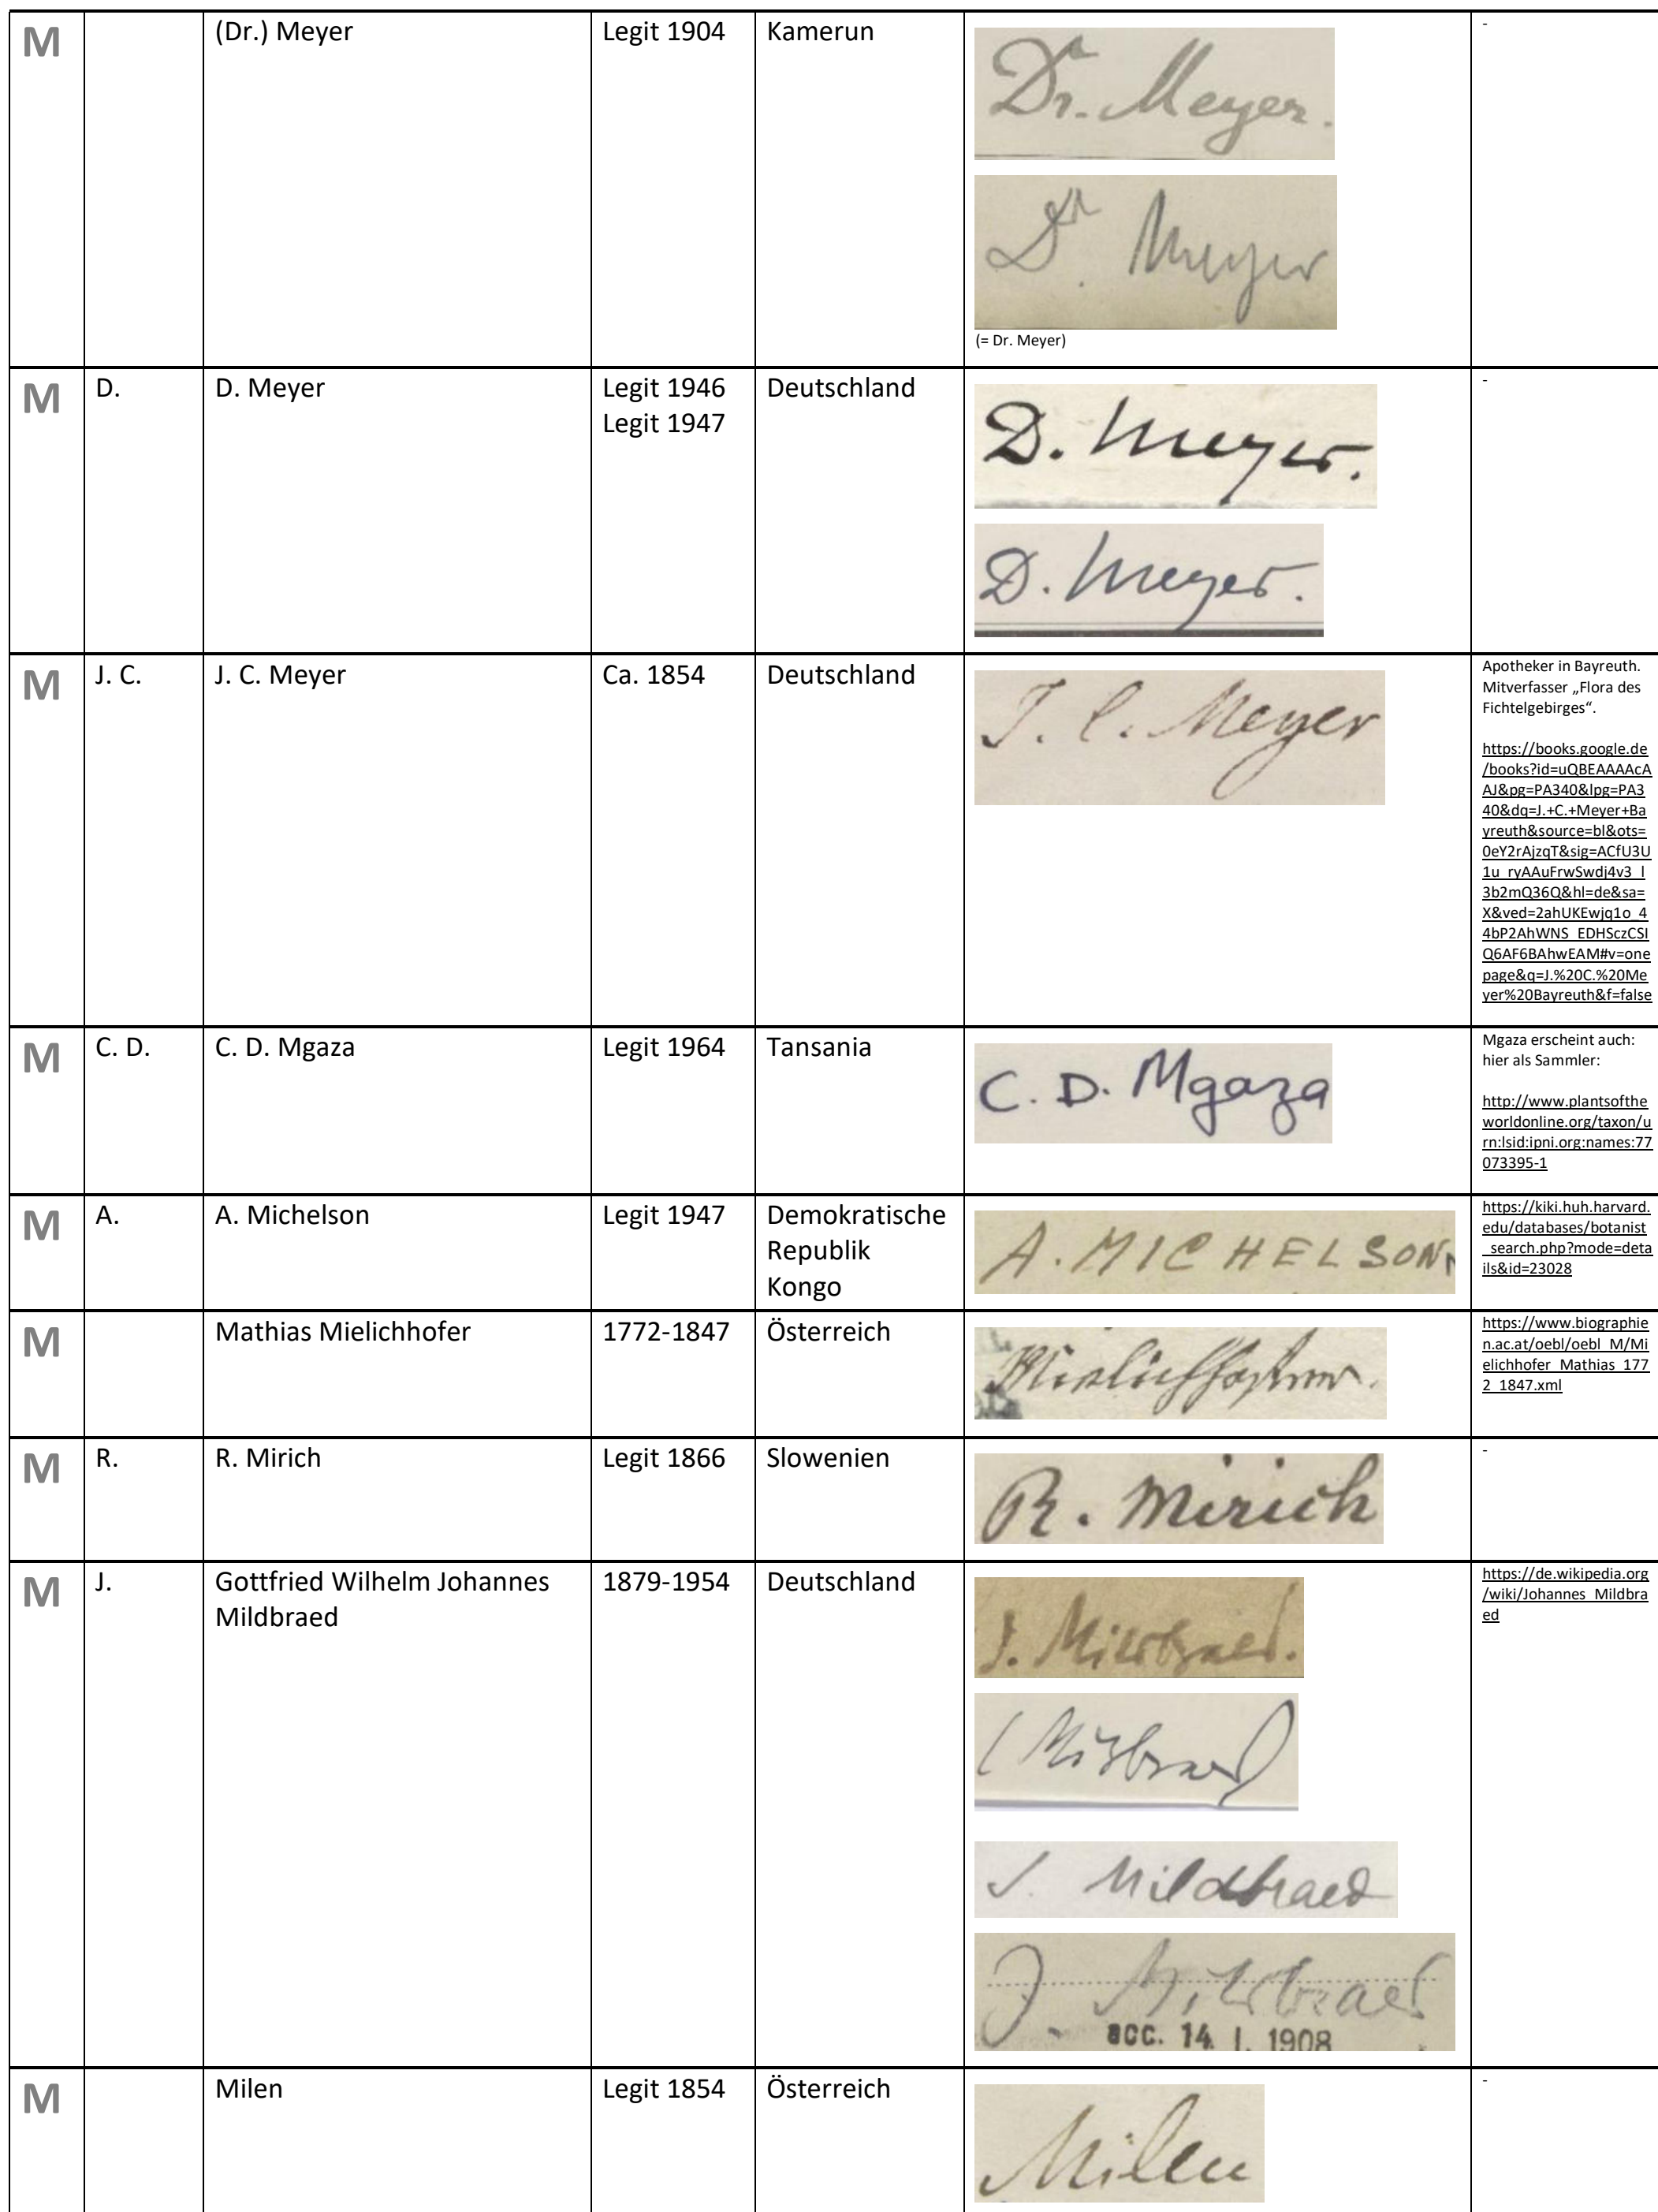 M
(Dr.) Meyer
Legit 1904
Kamerun
Dr. Meyer.
Dr. Meyer
(= Dr. Meyer)
-
M
D.
D. Meyer
Legit 1946
Legit 1947
Deutschland
D. Meyer.
D. Meyer.
-
M
J. C.
J. C. Meyer
Ca. 1854
Deutschland
J. C. Meyer
Apotheker in Bayreuth.
Mitverfasser „Flora des
Fichtelgebirges“.
https://books.google.de
/books?id=uQBEAAAAcA
AJ&pg=PA340&lpg=PA3
40&dq=J.+C.+Meyer+Ba
yreuth&source=bl&ots=
0eY2rAjzqT&sig=ACfU3U
1u_ryAAuFrwSwdj4v3_l
3b2mQ36Q&hl=de&sa=
X&ved=2ahUKEwjq1o_4
4bP2AhWNS_EDHSczCSI
Q6AF6BAhwEAM#v=one
page&q=J.%20C.%20Me
yer%20Bayreuth&f=false
M
C. D.
C. D. Mgaza
Legit 1964
Tansania
C. D. Mgaza
Mgaza erscheint auch:
hier als Sammler:
http://www.plantsofthe
worldonline.org/taxon/u
rn:lsid:ipni.org:names:77
073395-1
M
A.
A. Michelson
Legit 1947
Demokratische
Republik
Kongo
A. MICHELSON
https://kiki.huh.harvard.
edu/databases/botanist
_search.php?mode=deta
ils&id=23028
M
Mathias Mielichhofer
1772-1847
Österreich
Mielichhofer.
https://www.biographie
n.ac.at/oebl/oebl_M/Mi
elichhofer_Mathias_177
2_1847.xml
M
R.
R. Mirich
Legit 1866
Slowenien
R. Mirich
-
M
J.
Gottfried Wilhelm Johannes
Mildbraed
1879-1954
Deutschland
J. Mildbraed.
Mildbraed
J. Mildbraed
J. Mildbraed
acc. 14. I. 1908
https://de.wikipedia.org
/wiki/Johannes_Mildbra
ed
M
Milen
Legit 1854
Österreich
Milen
-